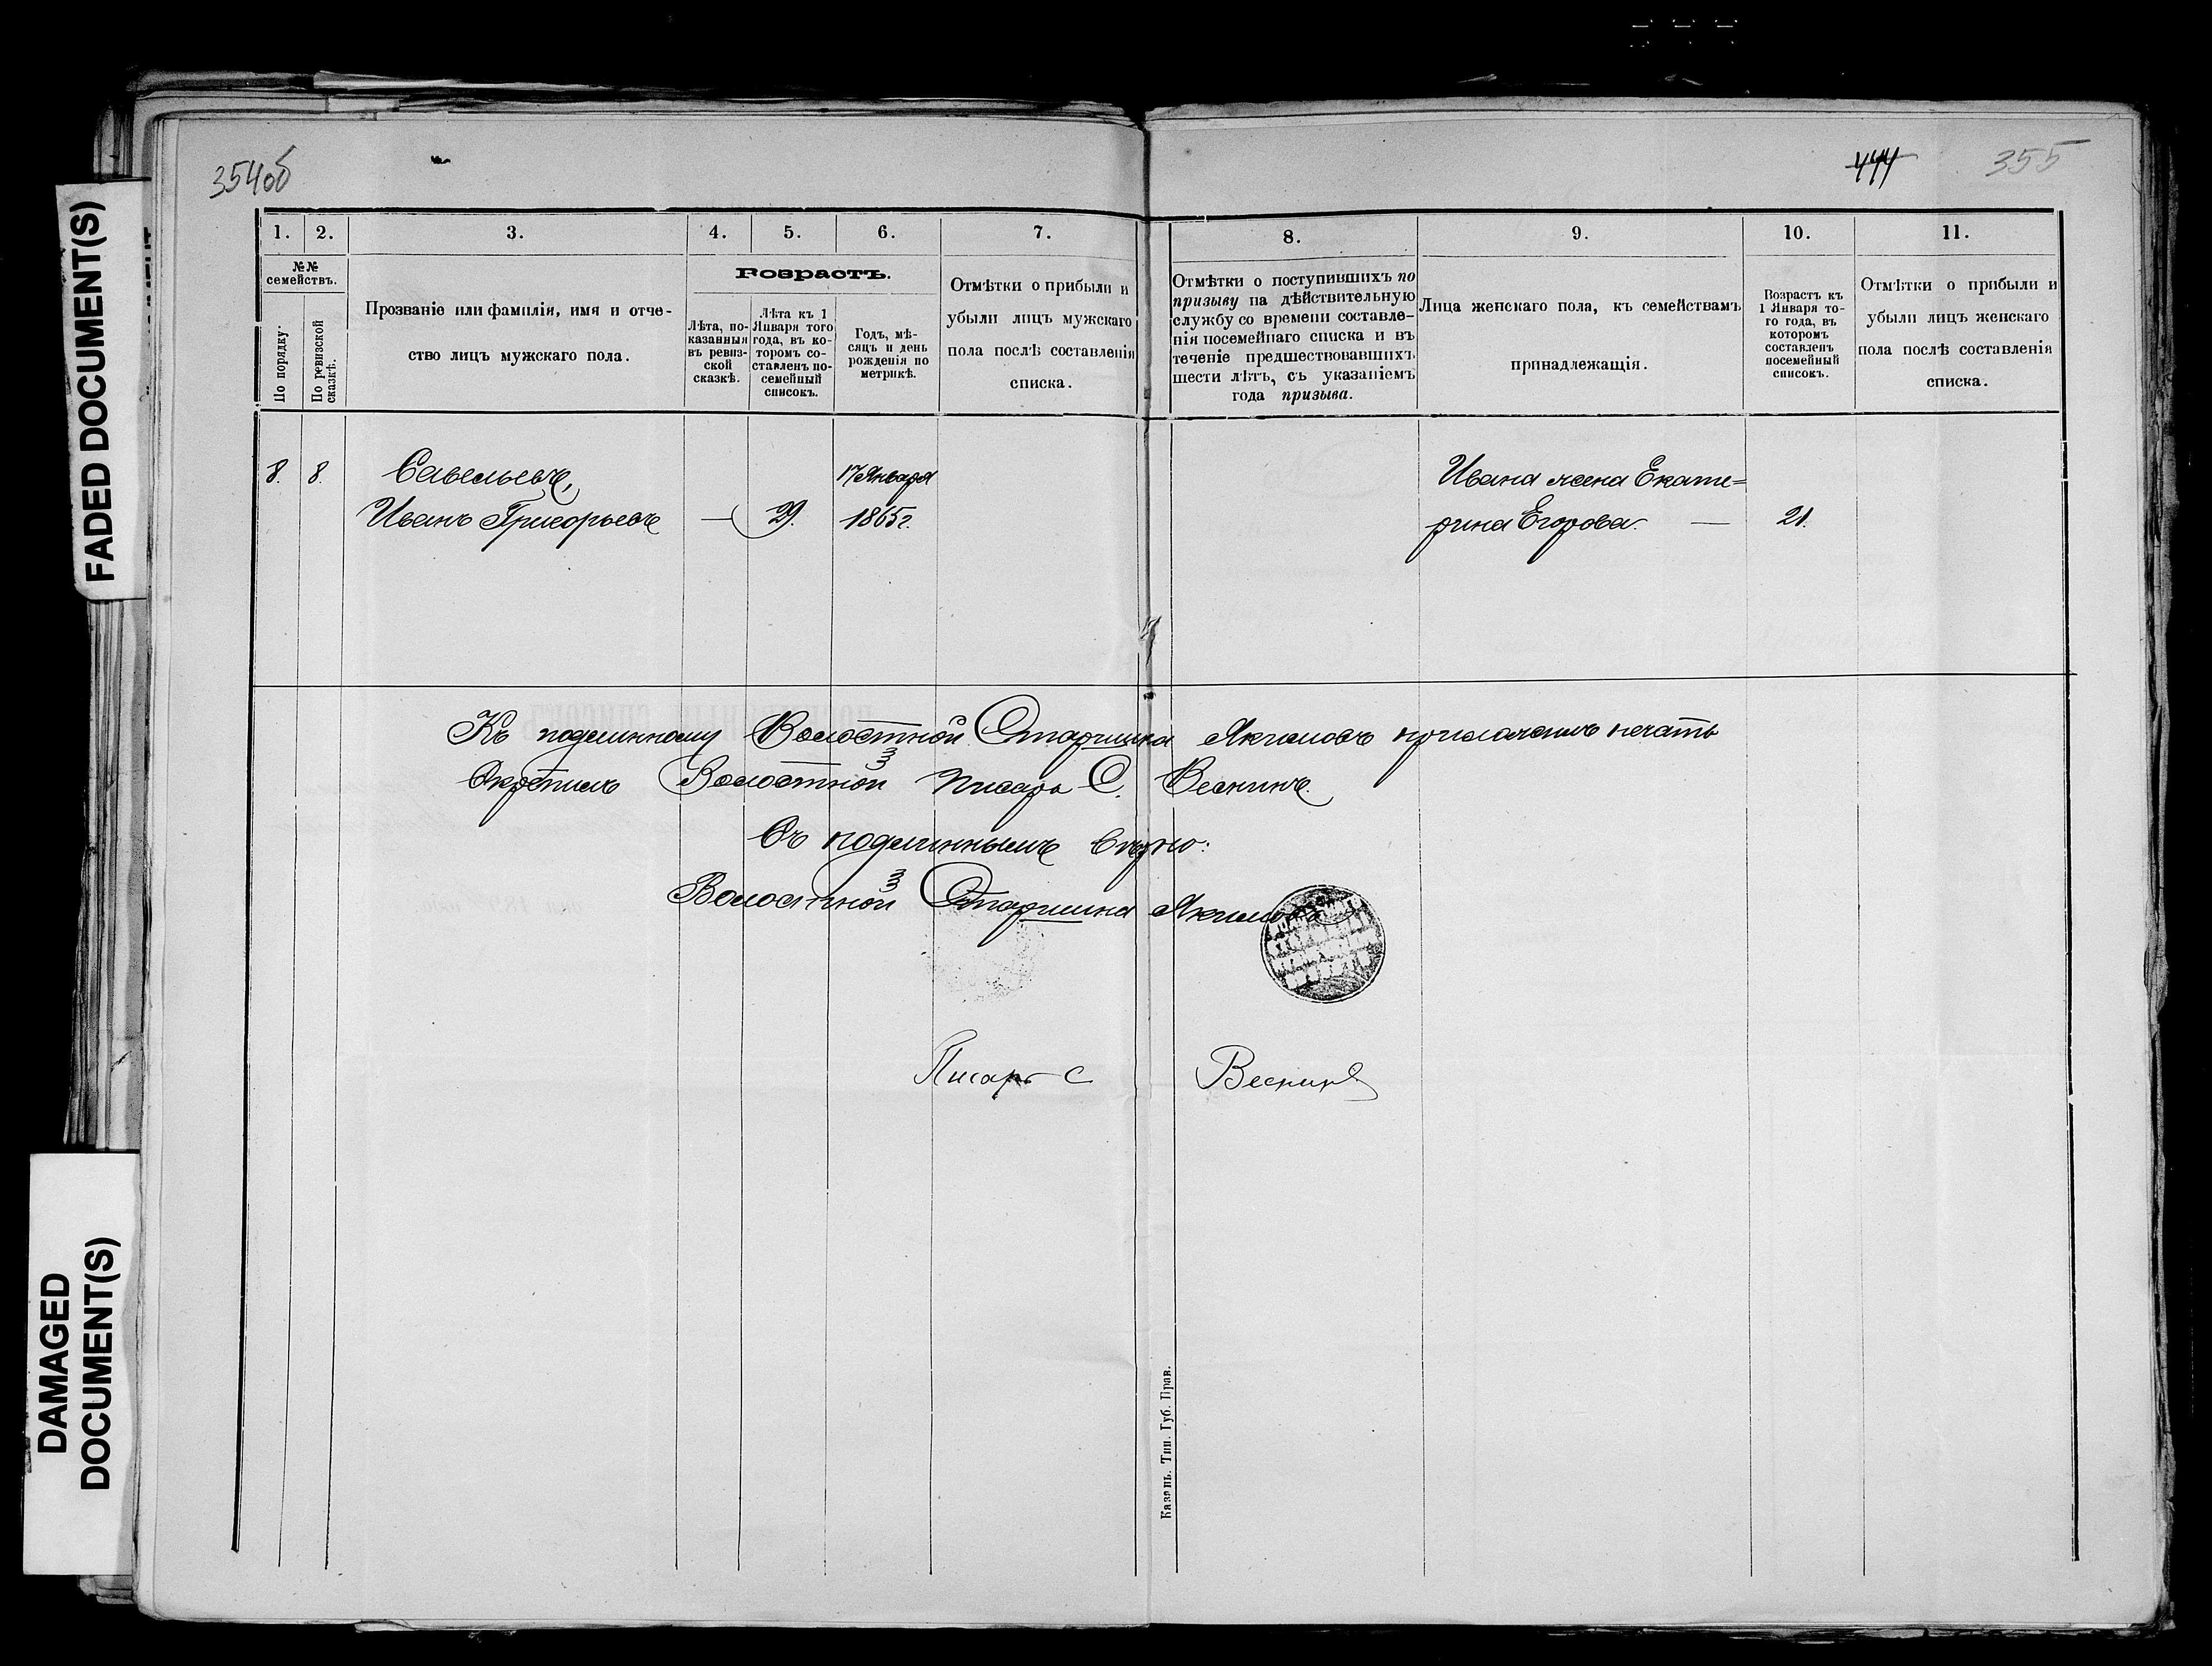 FADED DOCUMENT(S)
DAMAGED
DOCUMENT(S)
354об
444
355
1.
2.
3.
4.
5.
6.
7.
8.
9.
10.
11.
№№
семействъ.
По порядку.
По ревизской
сказкѣ.
Прозваніе или фамилія, имя и отче-
ство лицъ мужскаго пола.
Возрастъ.
Лѣта, по-
казанныя
въ ревиз-
ской
сказкѣ.
Лѣта къ 1
Января того
года, въ ко-
торомъ со-
ставленъ по-
семейный
списокъ.
Годъ, мѣ-
сяцъ и день
рожденія по
метрикѣ.
Отмѣтки о прибыли и
убыли лицъ мужскаго
пола послѣ составленія
списка.
Отмѣтки о поступившихъ по
призыву на дѣйствительную
службу со времени составле-
нія посемейнаго списка и въ
теченіе предшествовавшихъ
шести лѣтъ, съ указаніемъ
года призыва.
Лица женскаго пола, къ семействамъ
принадлежащія.
Возрастъ къ
1 Января то-
го года, въ
которомъ
составленъ
посемейный
списокъ.
Отмѣтки о прибыли и
убыли лицъ женскаго
пола послѣ составленія
списка.
8.
8.
Савельевъ,
Иванъ Григорьевъ
—
29.
17 Января
1865 г.
Ивана жена Екате=
рина Егорова. —
21.
Къ подлинному Волостной Старшина Якимовъ приложилъ печать
Скрѣпилъ Волостной Писарь С. Веснинъ.
Съ подлиннымъ вѣрно:
Волостной Старшина Якимовъ
Писарь С Веснинъ
Казань. Тип. Губ. Прав.